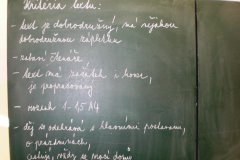 Kriteria textu:
- text je dobrodružný, má nějakou
dobrodružnou zápletku
- zabaví čtenáře
- text má začátek i konec,
je propracovaný
- rozsah 1-1,5 A4
- děj se odehrává s hlavními postavami,
o prázdninách,